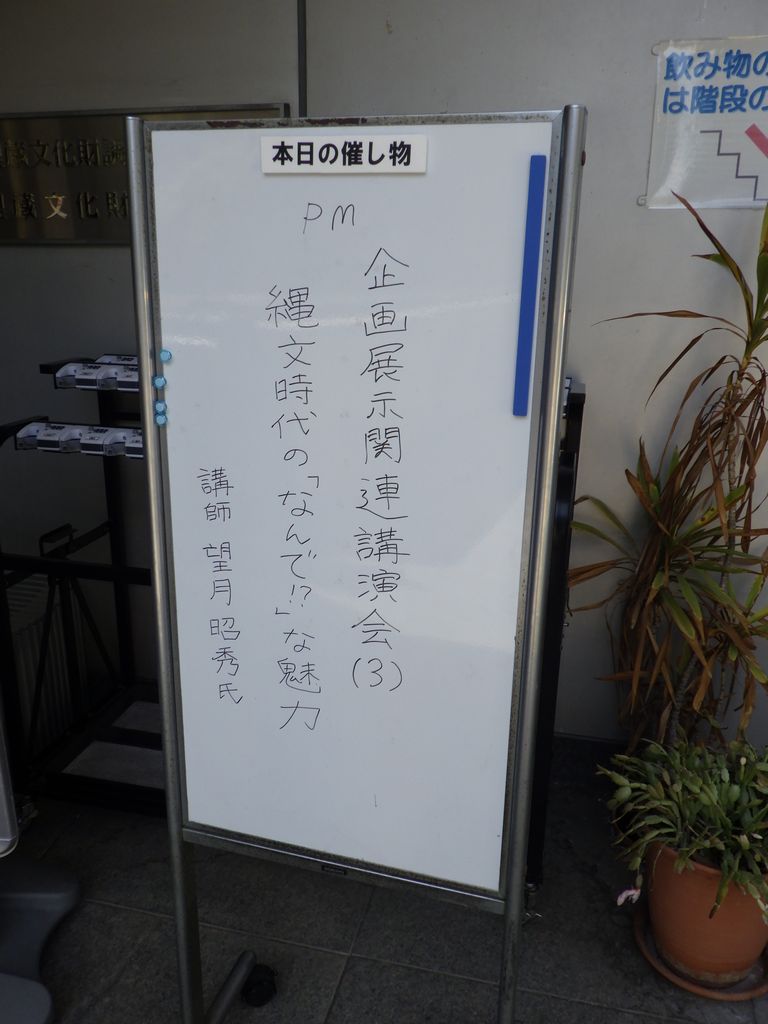 本日の催し物
PM
企画展示関連講演会(3)
縄文時代の「なんで!?」な魅力
講師 望月昭秀氏
飲み物の
は階段の
蔵文化財調
蔵文化財